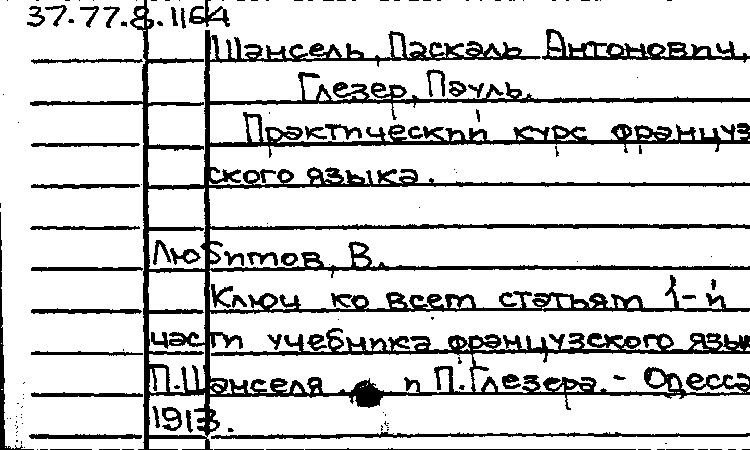 37.77.8.1164
Шансель, Паскаль Антонович,
Глезер, Пауль.
Практический курс француз
ского языка.
Любимов, В.
Ключ ко всем статьям 1-й
части учебника французского язы
П.Шанселя. и П.Глезера.- Одесса
1913.